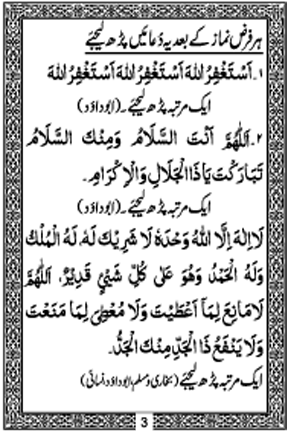 ہر فرض نماز کے بعد یہ دُعائیں پڑھ لیجئے
۱۔ اَسْتَغْفِرُ اللهَ اَسْتَغْفِرُ اللهَ اَسْتَغْفِرُ اللهَ
ایک مرتبہ پڑھ لیجئے۔ (ابوداؤد)
۲۔ اَللّٰهُمَّ اَنْتَ السَّلَامُ وَمِنْكَ السَّلَامُ
تَبَارَكْتَ يَا ذَا الْجَلَالِ وَالْاِكْرَامِ۔
ایک مرتبہ پڑھ لیجئے۔ (ابوداؤد)
لَا اِلٰهَ اِلَّا اللهُ وَحْدَهٗ لَا شَرِيْكَ لَهٗ، لَهُ الْمُلْكُ
وَلَهُ الْحَمْدُ وَهُوَ عَلٰى كُلِّ شَيْئٍ قَدِيْرٌ، اَللّٰهُمَّ
لَا مَانِعَ لِمَا اَعْطَيْتَ وَلَا مُعْطِيَ لِمَا مَنَعْتَ
وَلَا يَنْفَعُ ذَا الْجَدِّ مِنْكَ الْجَدُّ۔
ایک مرتبہ پڑھ لیجئے (بخاری و مسلم، ابوداؤد نسائی)
3